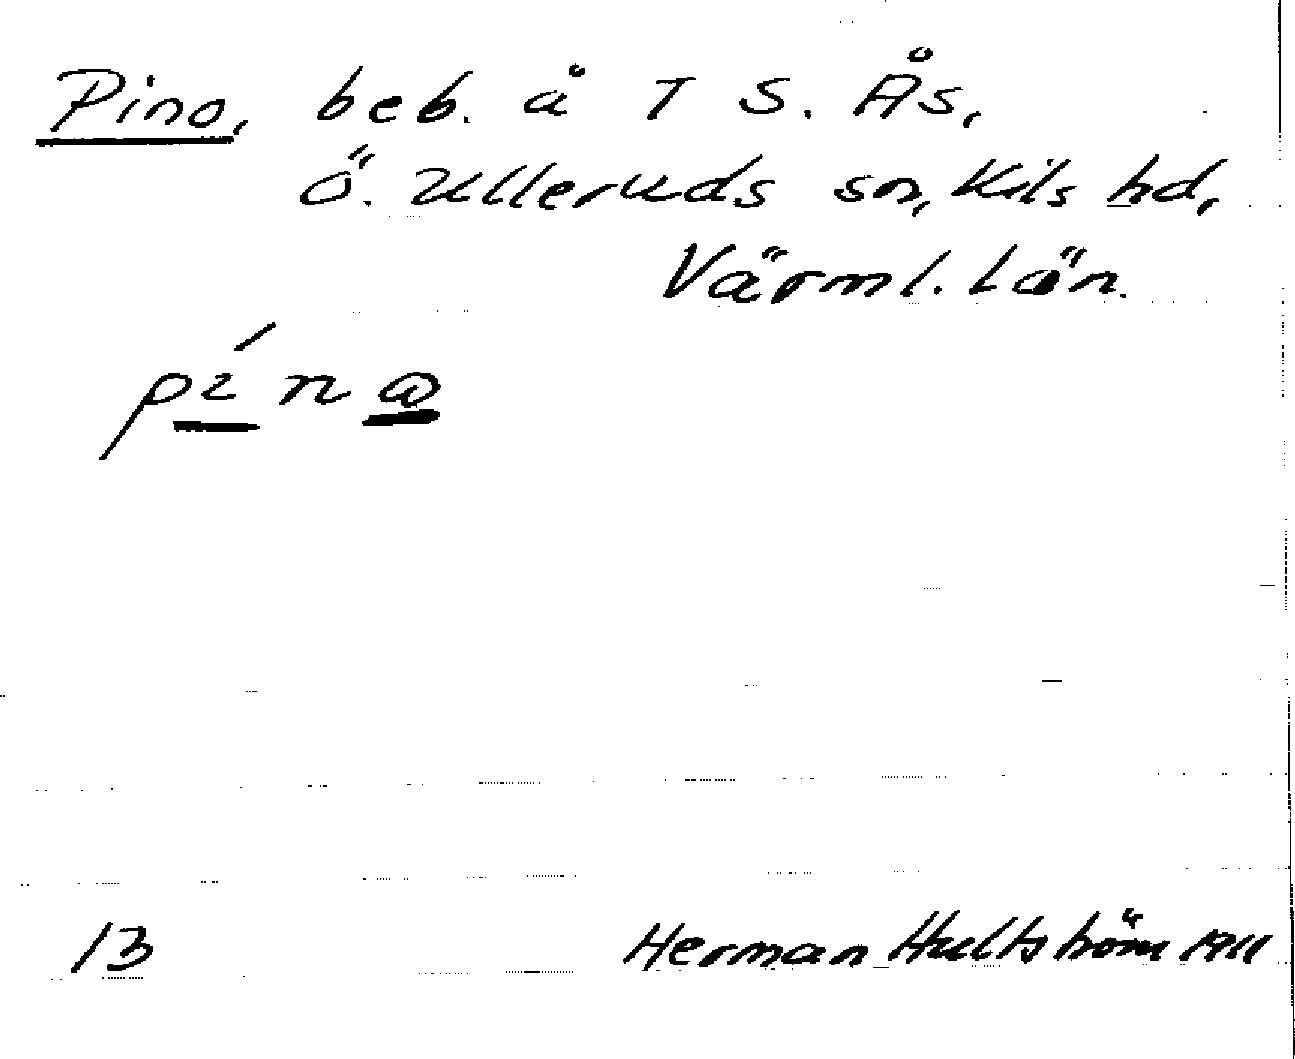 Pino, beb. å T S. Ås,
Ö. Ulleruds sn, Kils hd,
Värml. län.
pína
13 Herman Hultström 1911